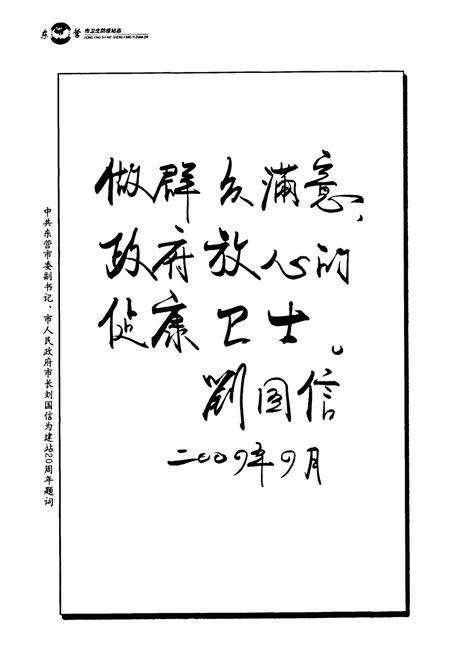 东 营
市卫生防疫站志
DONG YING SHI WEI SHENG FANG YI ZHAN ZHI
做群众满意、
政府放心的
健康卫士。
劉国信
二〇〇九年九月
中共东营市委副书记、市人民政府市长刘国信为建站20周年题词